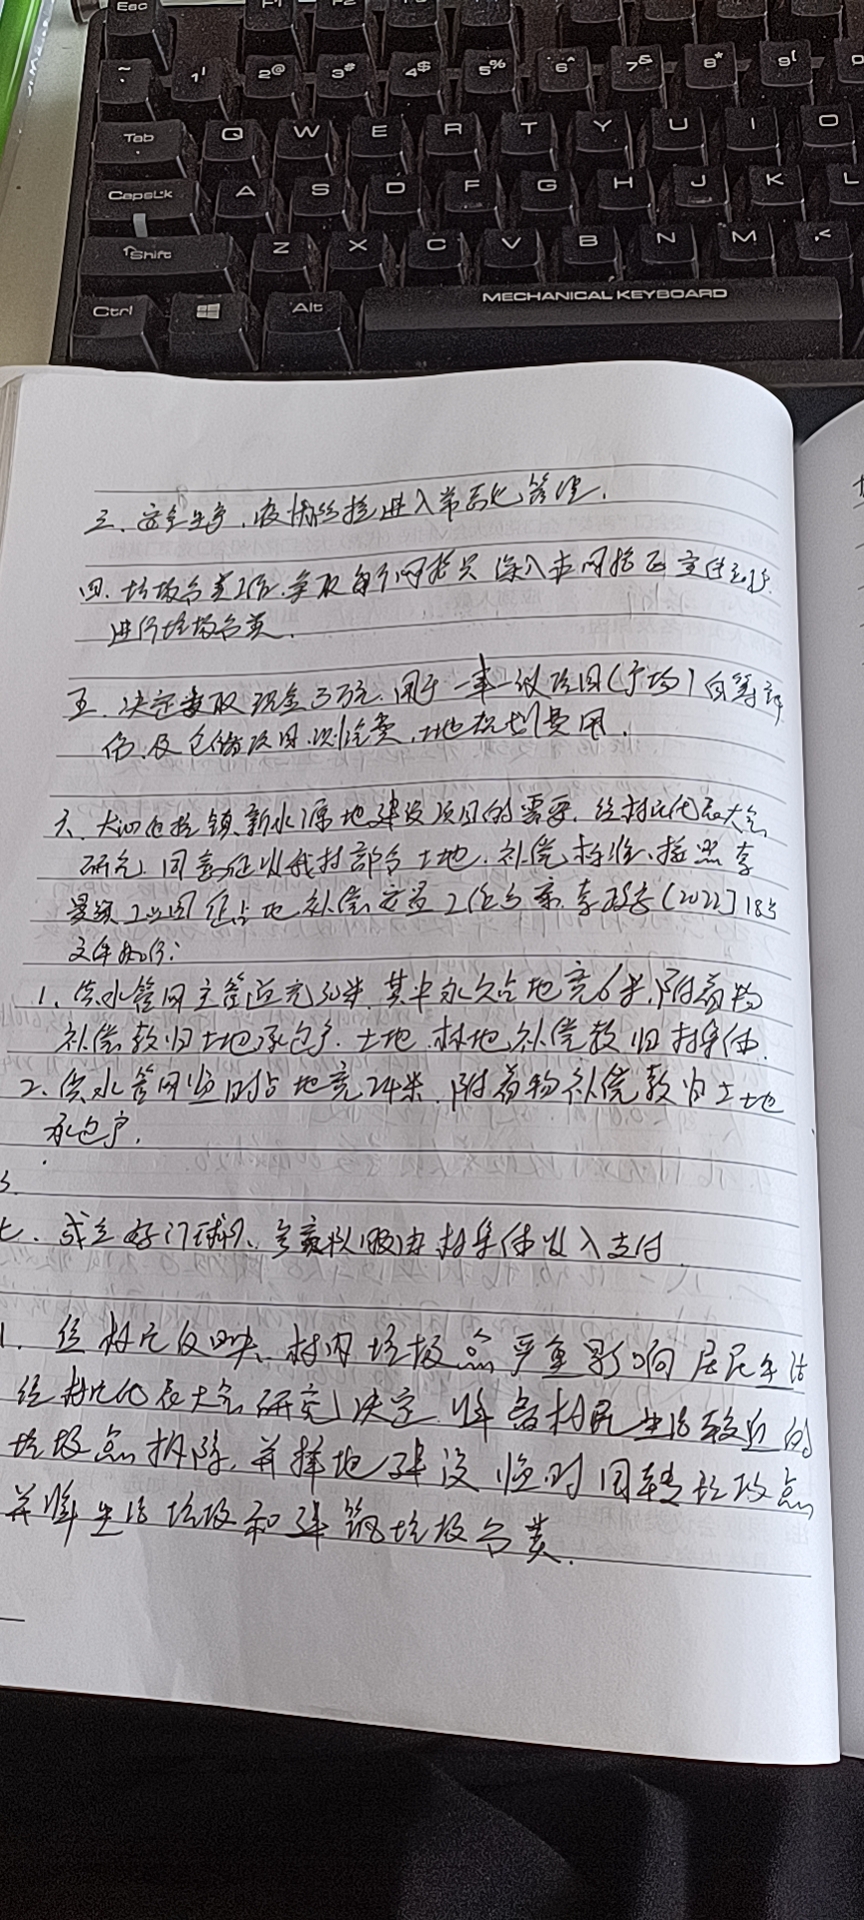 Esc F1 F2
~ 1! 2@ 3# 4$ 5% 6^ 7& 8* 9(
Tab Q W E R T Y U I O
CapsLk A S D F G H J K L
Shift Z X C V B N M <
Ctrl Alt MECHANICAL KEYBOARD
三、安全生产、疫情防控进入常态化管理.
四、垃圾分类工作,采取每个网格员深入本网格区宣传
进行垃圾分类.
五、决定提取现金3万元.用于一事一议项目(广场)自筹部
份.及仓储项目.测绘费,土地规划费用.
镇新水源地建设项目的需要.经村民代表大会
研究,同意征收我村部分土地.补偿标准.按照李
工业园征占地补偿安置工作方案 李政李(2022)18号
文件
1、供水管网主管道宽30米,其中永久占地宽6米,附着物
补偿款归土地承包户.土地、林地补偿款归村集体.
2、供水管网临时占地宽24米.附着物补偿款归土地
承包户.
3.
七、成立好门球队、服由村集体收入支付
1、经村民反映、村内垃圾点严重影响居民生活
经村民代表大会研究决定.将各村民生活较近的
垃圾点拆除,并择地建设临时周转垃圾点
并将生活垃圾和建筑垃圾分类.